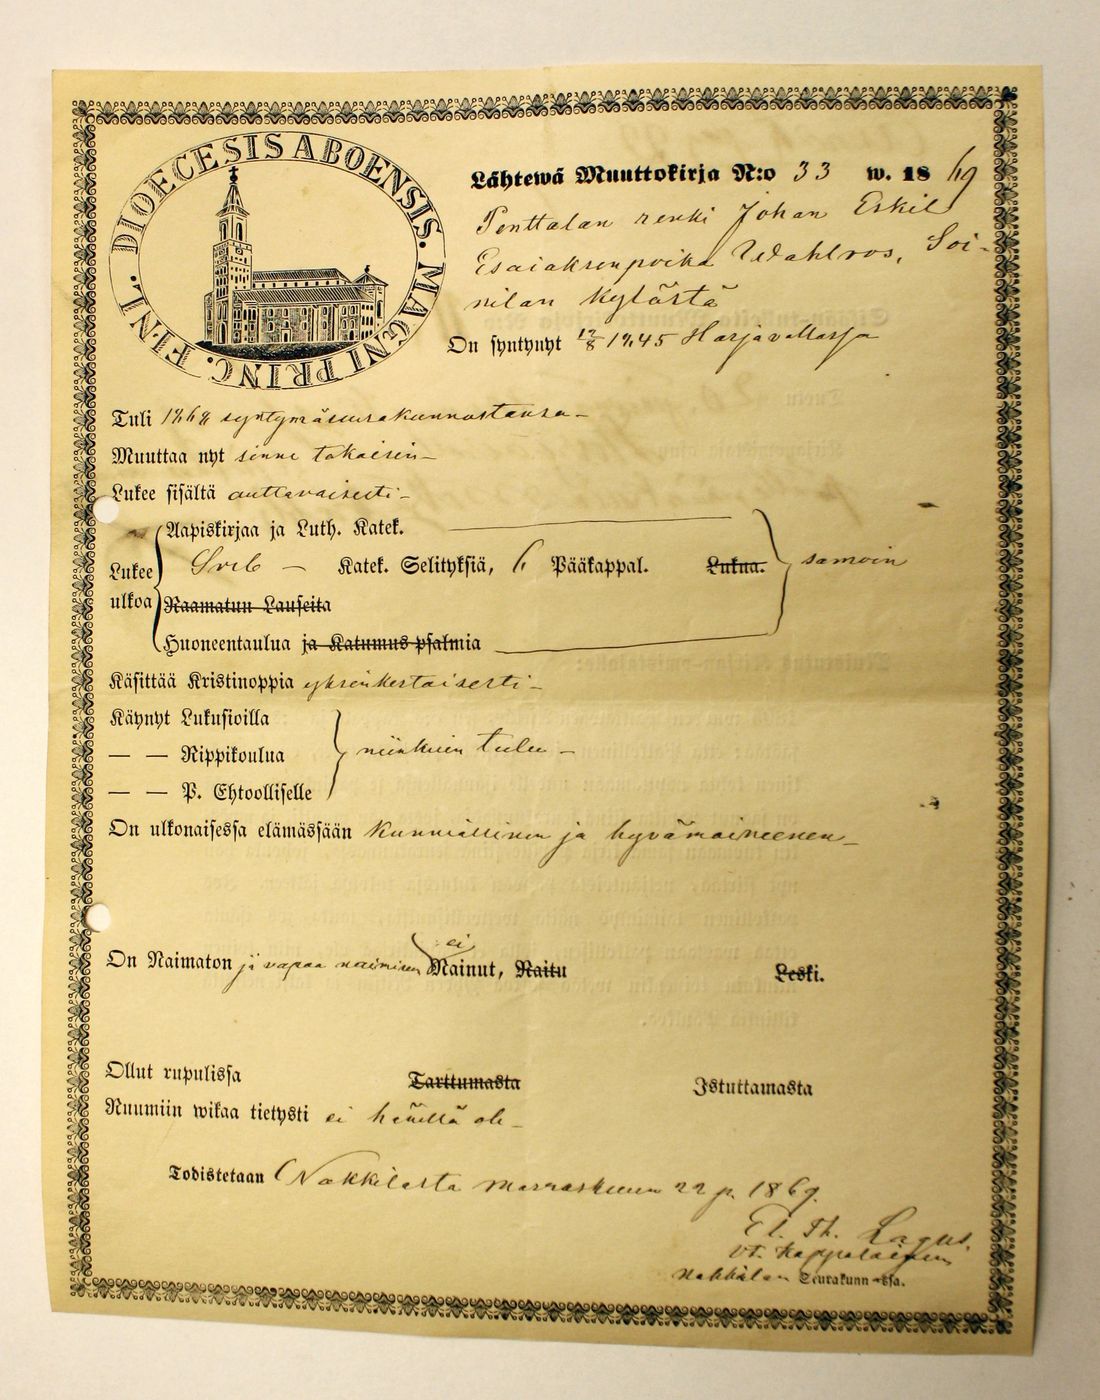 DIOECESIS ABOENSIS. MAGNI PRINC. FINL.
Lähtewä Muuttokirja N:o 33 w. 1869
Penttalan renki Johan Eskil
Esaiaksenpoika Wahlros, Soi-
nilan Kylästä
On syntynyt 17/8 1845 Harjavallassa
Tuli 1868 syntymäseurakunnastansa -
Muuttaa nyt sinne takaisin -
Lukee sisältä auttavaisesti -
Aapiskirjaa ja Luth. Katek.
Lukee Sveb - Katek. Selityksiä, 6 Pääkappal. Lukua. samoin
ulkoa Raamatun Lauseita
Huoneentaulua ja Katumus-psalmia
Käsittää Kristinoppia yksinkertaisesti -
Käynyt Lukusioilla
— — Rippikoulua niinkuin tulee -
— — P. Ehtoolliselle
On ulkonaisessa elämässään kunniallinen ja hyvämaineenen -
ei
On Naimaton ja vapaa naimisen Nainut, Naitu Leski.
Ollut rupulissa Tarttumasta Istuttamasta
Ruumiin wikaa tietysti ei hänellä ole -
Todistetaan Nakkilasta marraskuun 22 p. 1869.
El. Th. Lagus.
vt. Kappalainen
Nakkilan Seurakunnassa.